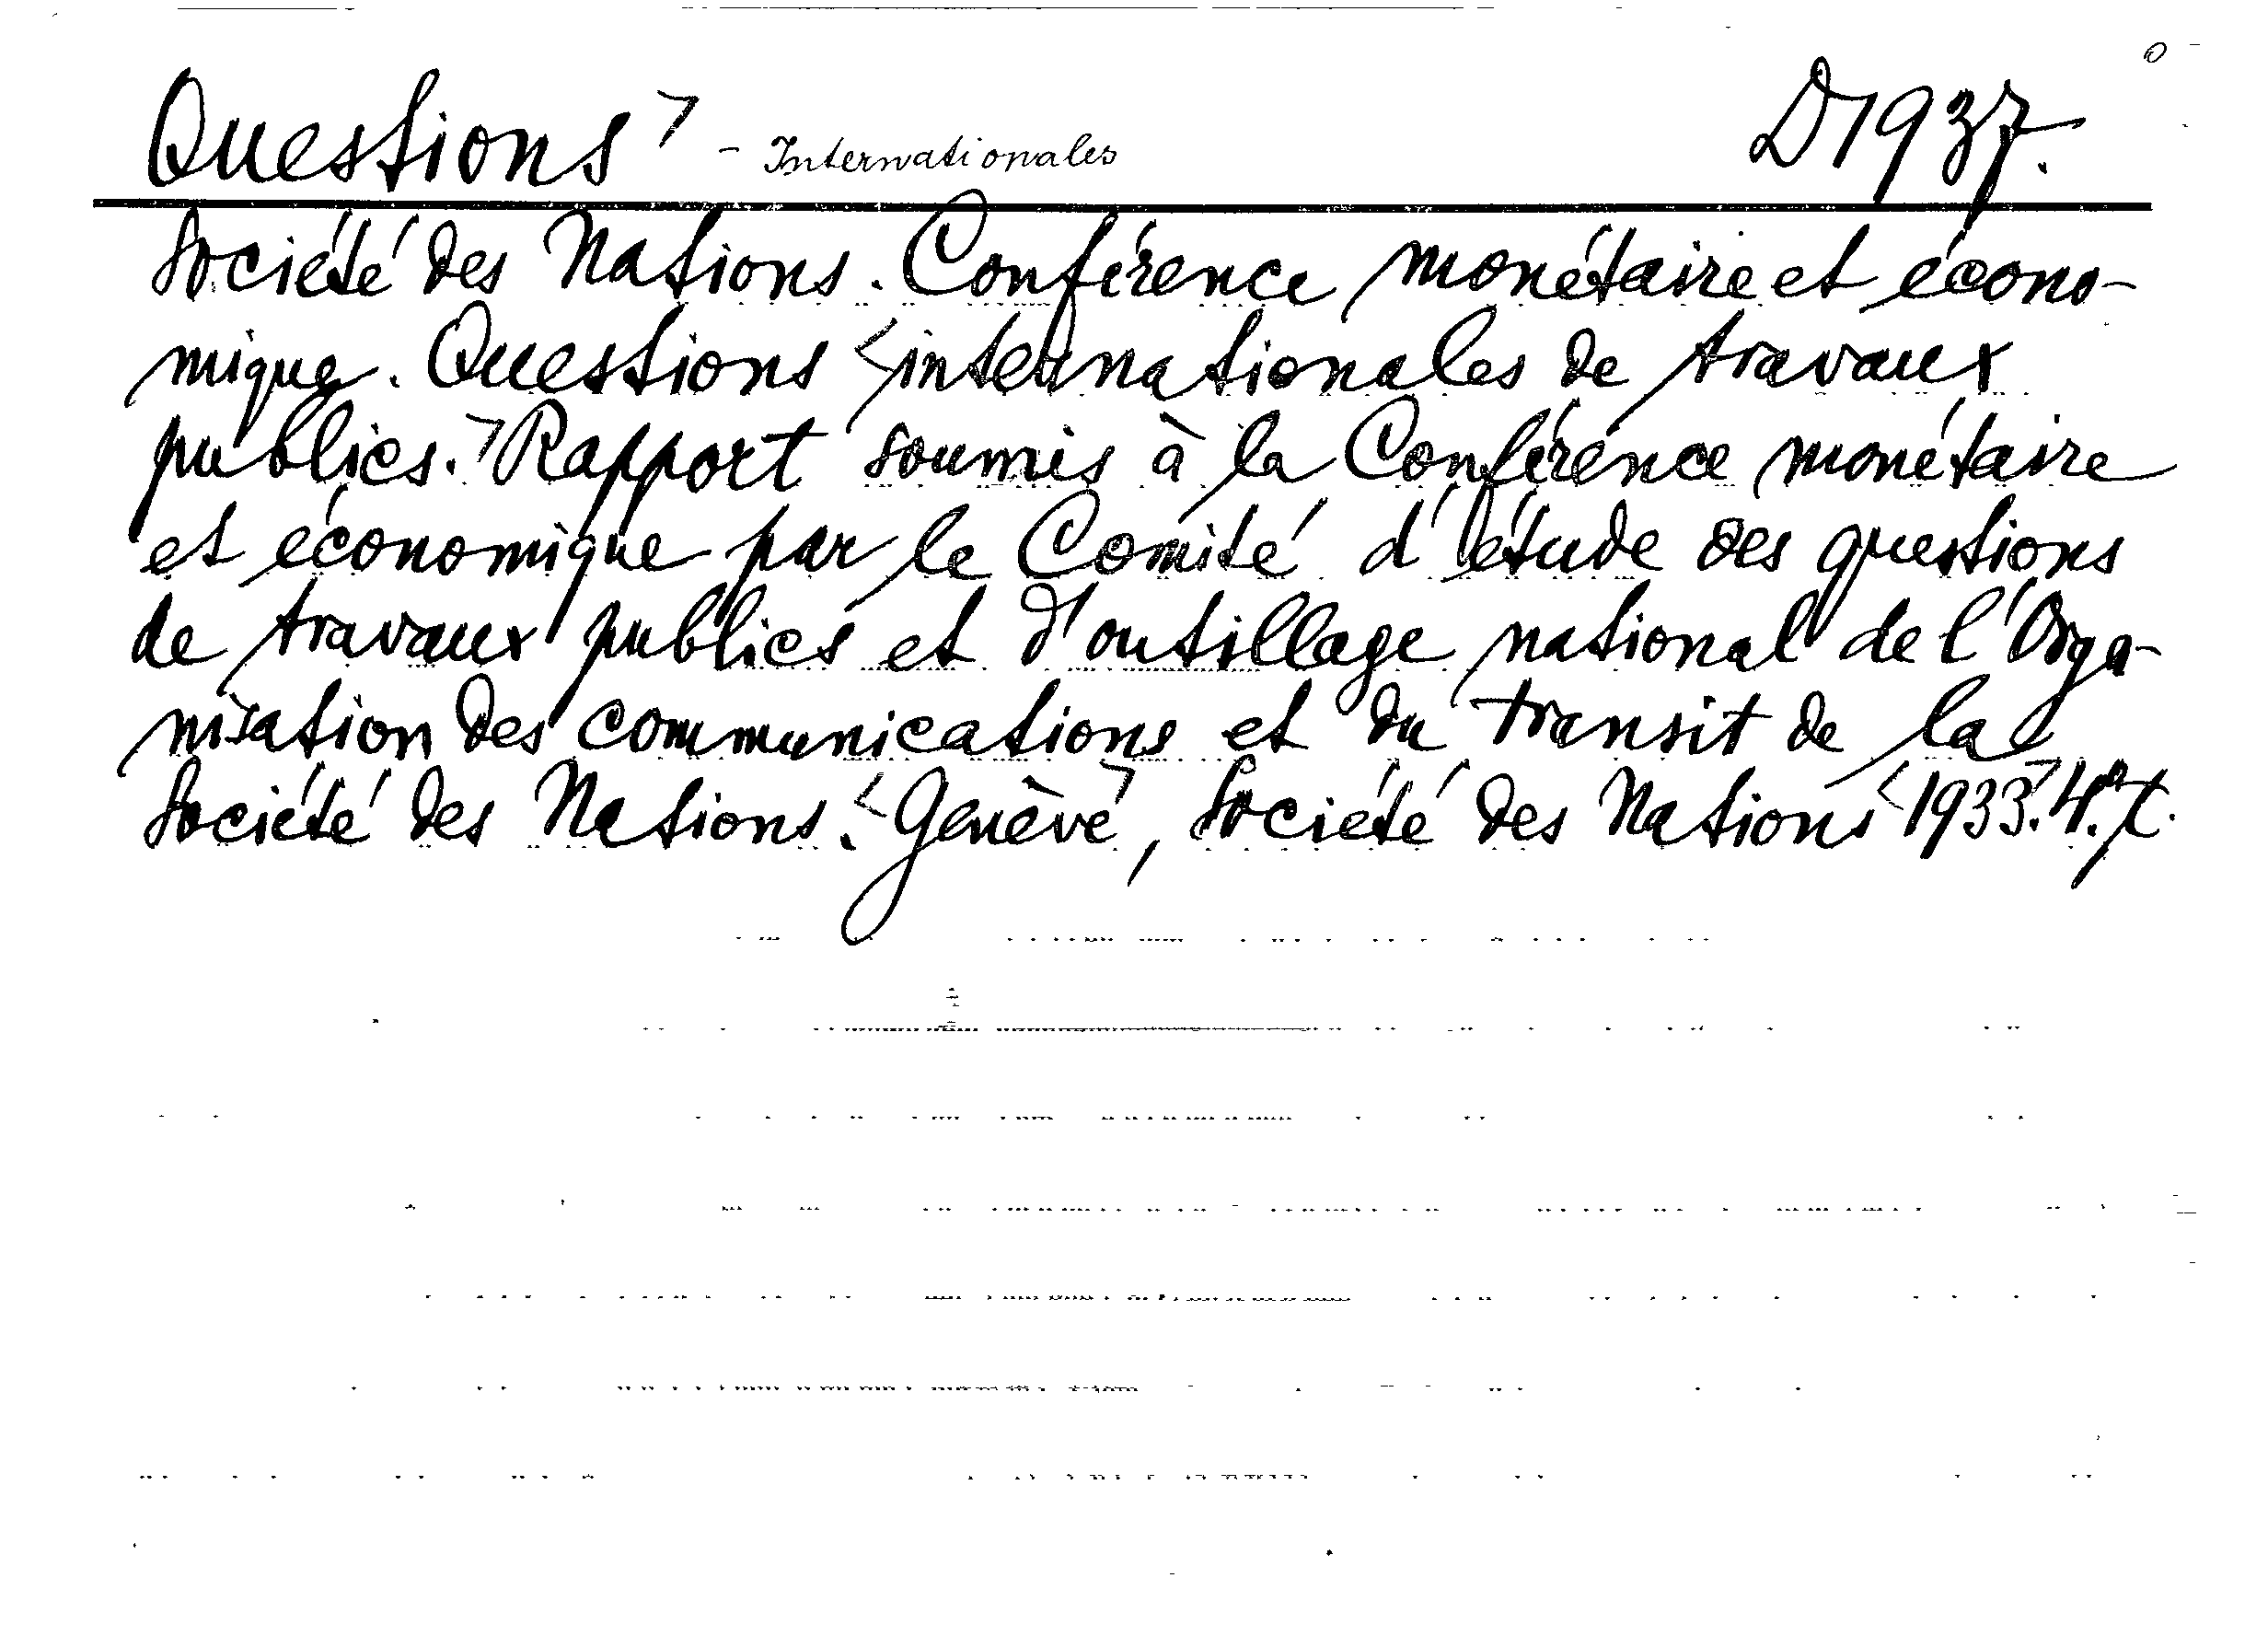 Questions - Internationales D1937.
Société des Nations. Conférence monétaire et écono-
mique. Questions internationales de travaux
publics. Rapport soumis à la Conférence monétaire
et économique par le Comité d'étude des questions
de travaux publics et d'outillage national de l'Orga-
nisation des communications et du transit de la
Société des Nations. Genève, Société des Nations 1933. 4º.